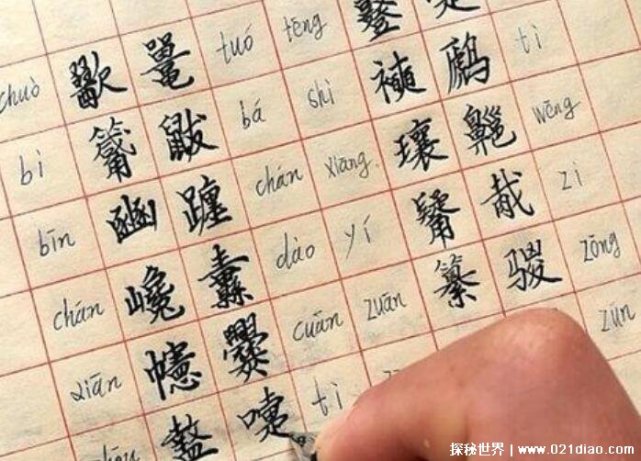 chuò 歠 鼍 tuó tēng
bì 鼥 bá shì 襫 tī
bīn 豳 躔 chán xiāng 瓖 齆 wèng
chán 巉 纛 dào yí 胾 zì
xiān 幰 爨 cuàn zuǎn 纂 zōng
嚏 tì zūn
探秘世界 | www.021diao.com